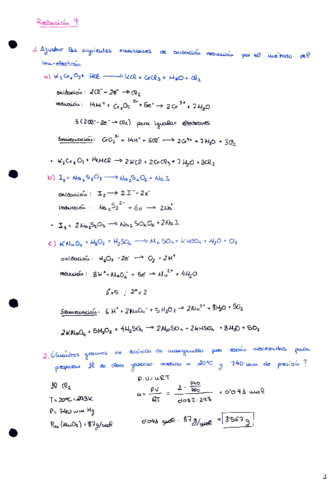 Relación 9
1. Ajustar las siguientes ecuaciones de oxidación reducción por el método del
ion-electrón
a) K₂Cr₂O₇ + HCl → KCl + CrCl₃ + H₂O + Cl₂
oxidación: 2Cl⁻ - 2e⁻ → Cl₂
reducción: 14H⁺ + Cr₂O₇²⁻ + 6e⁻ → 2Cr³⁺ + 7H₂O
3(2Cl⁻ - 2e⁻ → Cl₂) para igualar electrones
Semirreacción: CrO₇²⁻ + 14H⁺ + 6Cl⁻ → 2Cr³⁺ + 7H₂O + 3Cl₂
• K₂Cr₂O₇ + 14HCl → 2KCl + 2CrCl₃ + 7H₂O + 3Cl₂
b) I₂ + Na₂S₂O₃ → Na₂S₄O₆ + NaI
oxidación: I₂ → 2I⁻ - 2e⁻
reducción:
• I₂ + 2Na₂S₂O₃ → Na₂S₄O₆ + 2NaI
c) KMnO₄ + H₂O₂ + H₂SO₄ → MnSO₄ + KHSO₄ + H₂O + O₂
oxidación: H₂O₂ - 2e⁻ → O₂ + 2H⁺
reducción: 8H⁺ + MnO₄⁻ + 5e⁻ → Mn²⁺ + 4H₂O
Semirreacción: 6H⁺ + 2MnO₄⁻ + 5H₂O₂ → 2Mn²⁺ + 8H₂O + 5O₂
2KMnO₄ + 5H₂O₂ + 4H₂SO₄ → 2MnSO₄ + 2KHSO₄ + 8H₂O + 5O₂
2. ¿Cuántos gramos de dióxido de manganeso puro serán necesarios para
preparar 1l de cloro gaseoso medido a 20ºC y 740 mm de presión?
1l Cl₂
T = 20ºC = 293K
P = 740 mm Hg
Pm (MnO₂) = 87 g/mol
P·V = nRT
n = PV/RT = 1 · 740/760 / 0'082 · 293 = 0'041 mol
0'041 mol · 87 g/mol = 3'567 g
1